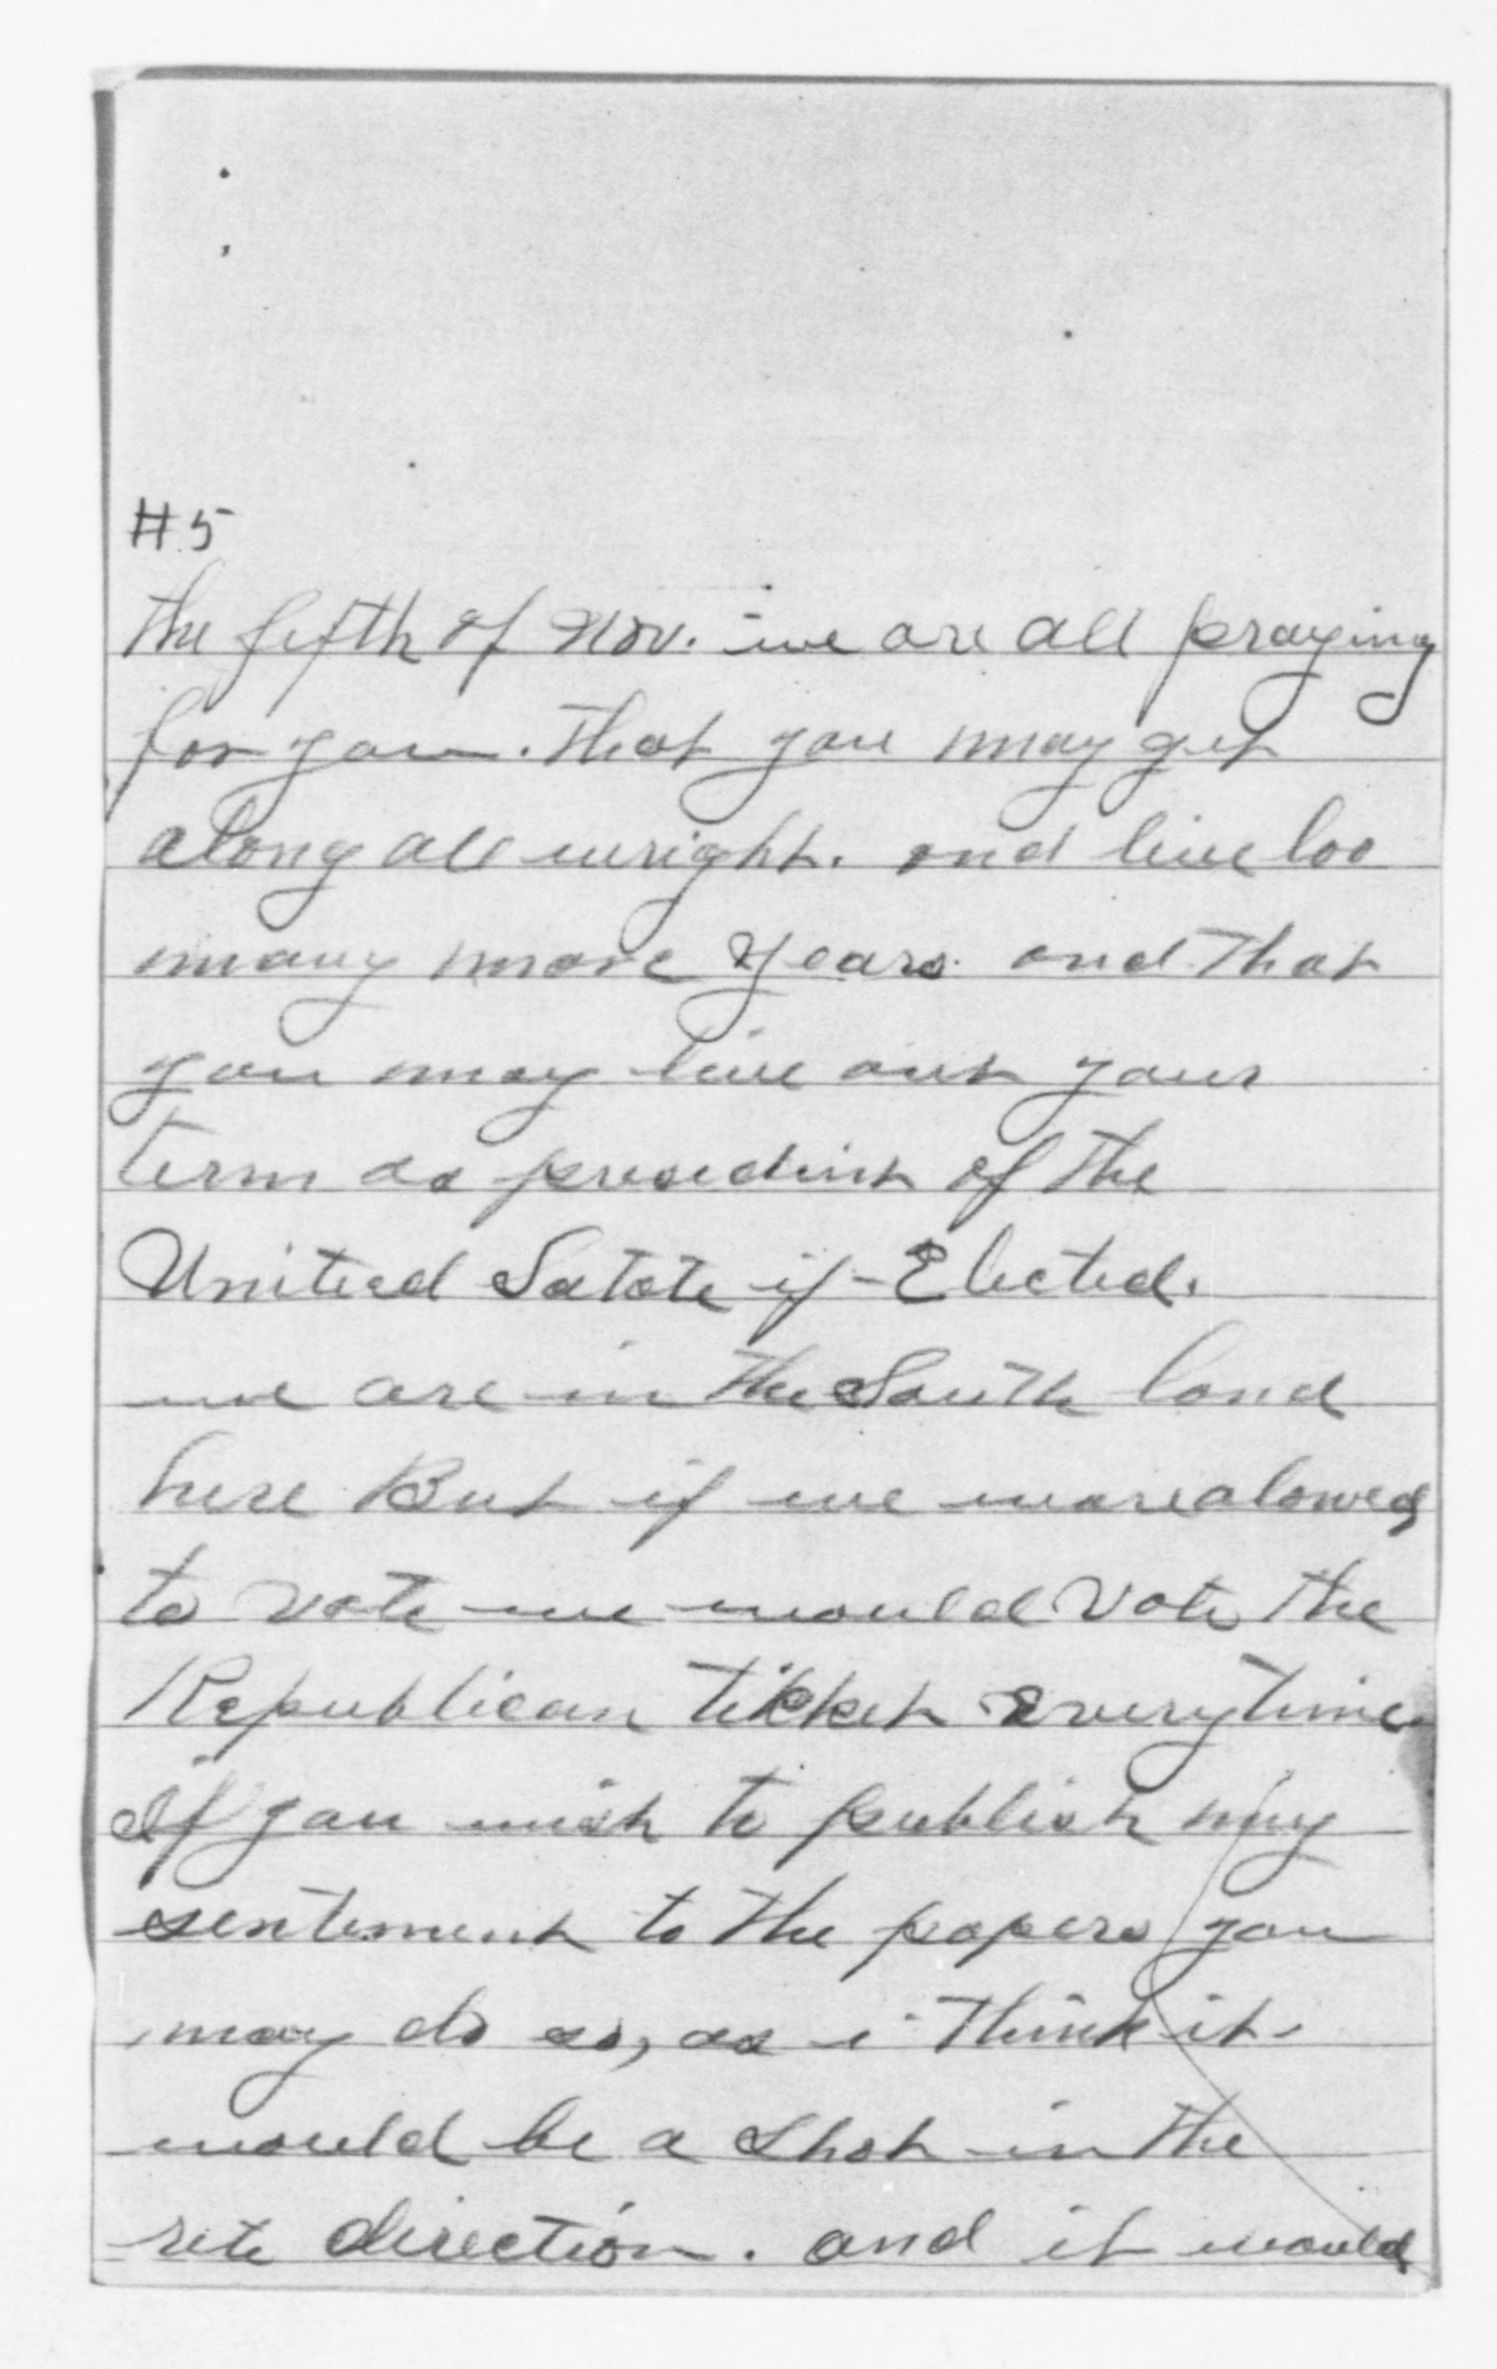 #5
the fifth of Nov. we are all praying
for you. that you may get
along all wright. and live 100
many more years and that
you may live out your
term as presedint of the
United Satate if Elected.
we are in the South land
here But if we ware alowed
to vote we would vote the
Republican tikket everytime
If you wish to publish my
sentement to the papers you
may do so, as i think it
would be a shot in the
rite direction. and it would